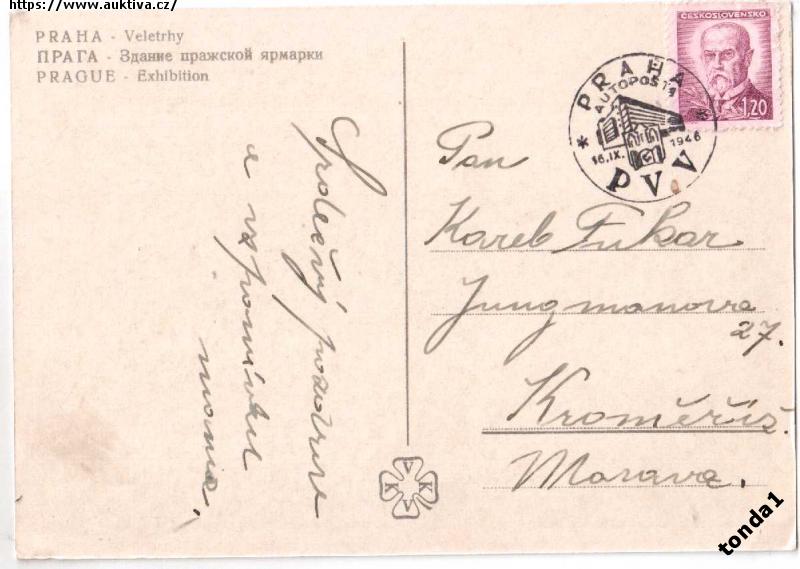 https://www.auktiva.cz/
PRAHA - Veletrhy
ПРАГА - Здание пражской ярмарки
PRAGUE - Exhibition
ČESKOSLOVENSKO
1.20
PRAHA
AUTOPOŠTA
16.IX. 1946
PVV
Pan
Karel Fukar
Jungmanova
27.
Kroměříž.
Morava.
Srdečný pozdrav
a vzpomínku
VKVK
tonda1